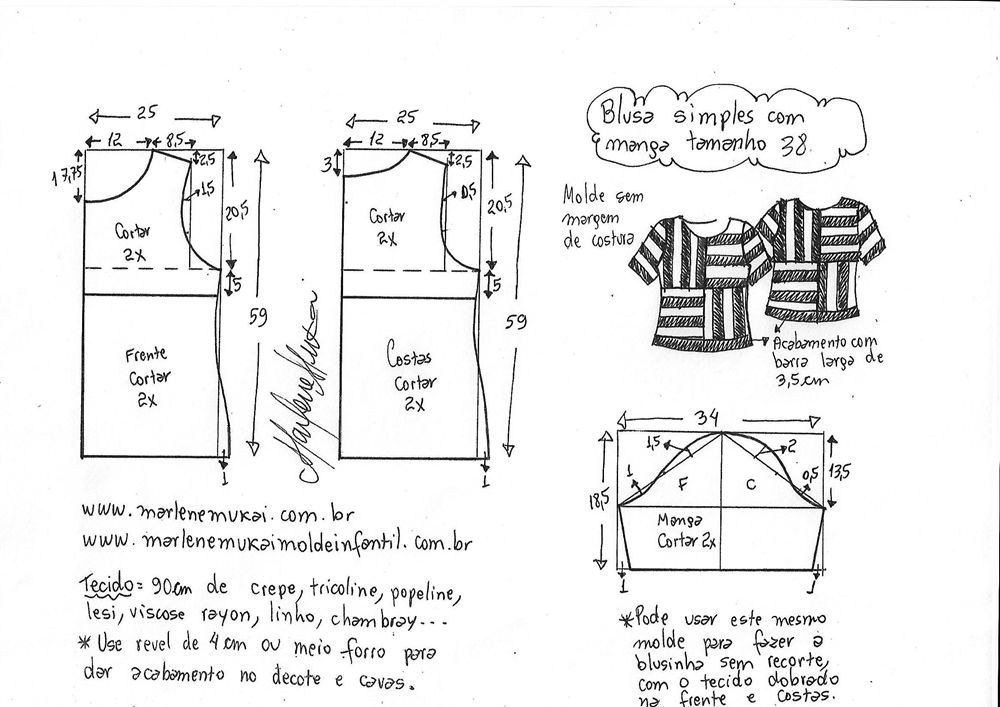 Blusa simples com
manga tamanho 38.
Molde sem
margem
de costura
Acabamento com
barra larga de
3,5cm
25
12
8,5
2,5
17,75
1,5
20,5
5
59
1
Cortar
2x
Frente
Cortar
2x
25
12
8,5
2,5
3
0,5
20,5
5
59
1
Cortar
2x
Costas
Cortar
2x
Marlene Mukai
34
1,5
2
1
0,5
13,5
18,5
F
C
Manga
Cortar 2x
1
1
www.marlenemukai.com.br
www.marlenemukaimoldeinfantil.com.br
Tecido= 90cm de crepe, tricoline, popeline,
lesi, viscose rayon, linho, chambray---
*Use revel de 4cm ou meio forro para
dar acabamento no decote e cavas.
*Pode usar este mesmo
molde para fazer a
blusinha sem recorte,
com o tecido dobrado
na frente e costas.